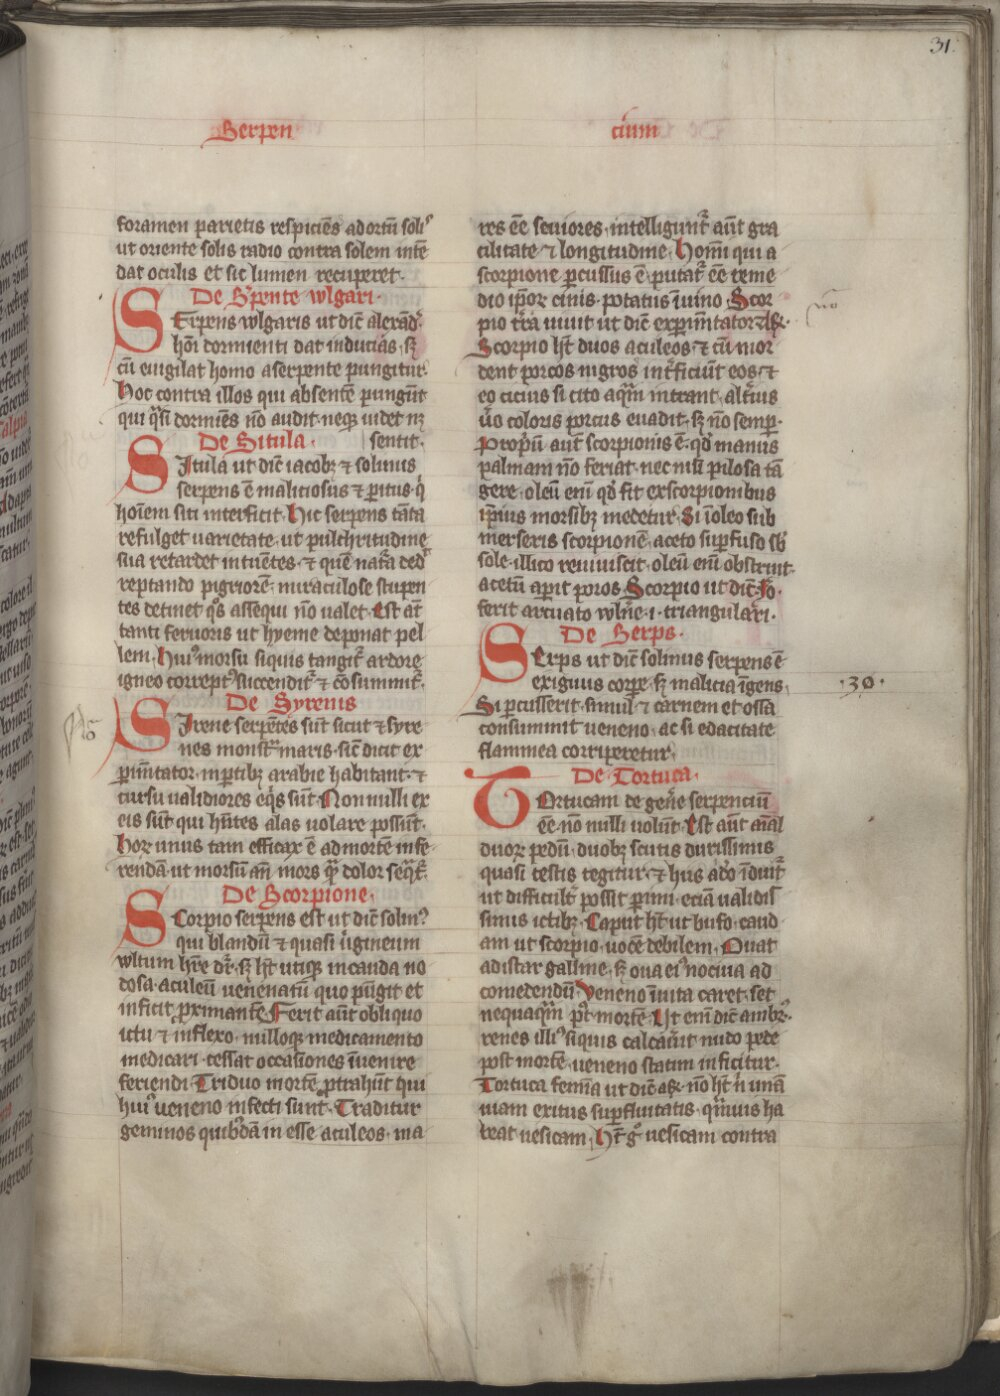 31.
Serpen
cium
foramen parietis respiciēs ad ortū soliꝰ
ut oriente solis radio contra solem intē
dat oculis et sic lumen recuperet.
De S'pente wlgari.
SErpens wlgaris ut dic̄ alexād'.
hōi dormienti dat inducias, sꝫ
cū euigilat homo a serpente pungitur.
Hoc contra illos qui absentē pungūt
qui q̄si dormiēs nō audit neqꝫ uidet nꝫ
De Situla. sentit.
SItula ut dic̄ iacobꝫ ⁊ solinus
serpens ē maliciosus ⁊ ꝑitus. q'
hoīem siti interficit. Hic serpens tāta
refulget uarietate, ut pulchritudine
sua retardet intuētes, ⁊ quē nat'a ded'
reptando pigriorē, miraculose stupen
tes detinet q̄s assequi nō ualet. Est at̄
tanti feruoris ut hyeme deponat pel
lem. Huiꝰ morsu siquis tangit' ardore
igneo correptꝰ succendit' ⁊ cōsummit'.
De Syrenis
SIrene serpētes sūt sicut ⁊ syre
nes monstr' maris. sic̄ dicit ex
ꝑim̄tator. in ꝑtibꝫ arabie habitant. ⁊
cursu ualidiores eq̄s sūt. Non nulli ex
eis sūt qui hn̄tes alas uolare possūt.
Hoꝝ unus tam efficax ē ad mortē infe
rendā. ut morsū an̄ mors q̄ꝫ dolor seq̄t'.
De Scorpione.
SCorpio serpens est ut dic̄ solinꝰ
qui blandū ⁊ quasi u'gineum
wltum h're dr̄. sꝫ ht̄ utiqꝫ in cauda no
dosa aculeū uenenatū quo pūgit et
inficit ꝓximantē. Ferit aūt obliquo
ictu ⁊ inflexo. nulloqꝫ medicamento
medicari. cessat occasiones īuenire
feriendi. Triduo mortē ꝓtrahūt qui
huiꝰ ueneno infecti sunt. Traditur
geminos quibꝰdā in esse aculeos. ma
res eē seuiores, intelligunt' aūt gra
cilitate ⁊ longitudine. Homī qui a
scorpione ꝑcussus ē, putat' eē reme
dio ip̄oꝝ cinis. potatus ī uino. Scor
pio t'ra uiuit ut dic̄ exꝑim̄tator
Scorpio ht̄ duos aculeos, ⁊ cū mor
dent porcos nigros int'ficiūt eos, ⁊
eo cicius si cito aq̄m intrant. alt'ius
u'o coloris porcus euadit, sꝫ nō semꝑ.
Propr'ū aūt scorpionis ē. qd' manus
palmam nō feriat. nec nisi pilosa tā
gere. oleū eni qd' fit ex scorpionibus
ip̄ius morsibꝫ medetur. Si ī oleo sub
merseris scorpionē, aceto suꝑfuso sb'
sole. illico reuiuiscit, oleū eni obstruit.
acetū aꝑit poros. Scorpio ut dic̄.
ferit arcuato wln̄e .i. triangulari.
De Serps.
SErps ut dic̄ solinus serpens ē
exiguus corꝑe, sꝫ malicia īgens,
Si ꝑcusserit. simul ⁊ carnem et ossa
consummit ueneno. ac si edacitate
flammea corriperetur,
.30.
De Tortuca.
TOrtucam de gen'e serpenciū
eē. nō nulli volūt. Est aūt aīal
duoꝝ pedū, duobꝫ scutis durissimis
quasi testis tegitur. ⁊ hiis ad'o īduit'
ut difficult' possit ꝑimi. eciā ualidis
simis ictibꝫ. Caput ht̄ ut bufo, caud
am ut scorpio, uocē debilem. Ouat
ad istar galline, sꝫ oua eiꝰ nociua ad
comedendū. Veneno ī uita caret. set
nequaq̄m p't mortē. Ut eni dic̄ ambr'.
renes illiꝰ siquis calcau'it nudo pede
post mortē, ueneno statim inficitur.
Tortuca femīa ut dic̄ nō ht̄ n' unā
uiam exitus suꝑfluitatis. q̄muis ha
beat uesicam, ht̄ g' uesicam contra